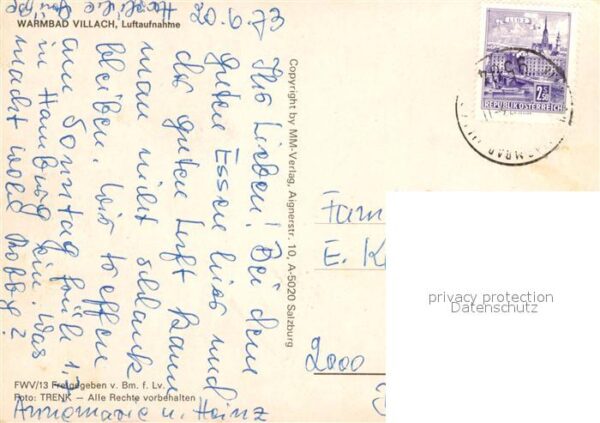 WARMBAD VILLACH, Luftaufnahme
20.6.73
Ihr Lieben! Bei dem
guten Essen hier und
der guten Luft kann
man nicht schlank
bleiben. Wir hoffen
am Sonntag früh 1.7
in Hamburg sein. Was
macht wohl Bobby?
Herzliche Grüße
Annemarie u. Heinz
Copyright by MM-Verlag, Aignerstr. 10, A-5020 Salzburg
FWV/13 Freigegeben v. Bm. f. Lv.
Foto: TRENK — Alle Rechte vorbehalten
LINZ
2.50
REPUBLIK ÖSTERREICH
WARMBAD
Fam
E. K
2000
privacy protection
Datenschutz